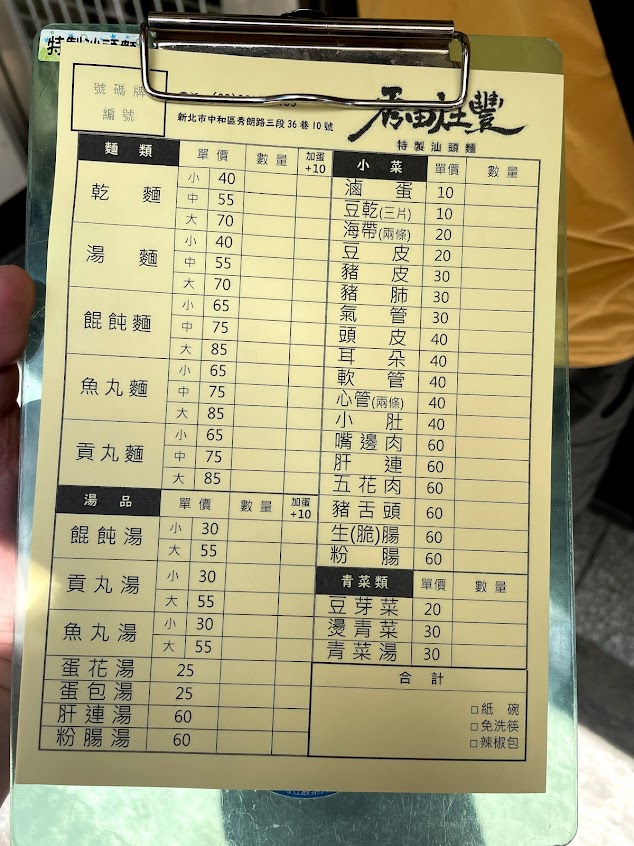 號碼牌
編號
新北市中和區秀朗路三段36巷10號
特製汕頭麵
麵類 單價 數量 加蛋+10
乾麵 小 40
中 55
大 70
湯麵 小 40
中 55
大 70
餛飩麵 小 65
中 75
大 85
魚丸麵 小 65
中 75
大 85
貢丸麵 小 65
中 75
大 85
湯品 單價 數量 加蛋+10
餛飩湯 小 30
大 55
貢丸湯 小 30
大 55
魚丸湯 小 30
大 55
蛋花湯 25
蛋包湯 25
肝連湯 60
粉腸湯 60
小菜 單價 數量
滷蛋 10
豆乾(三片) 10
海帶(兩條) 20
豆皮 20
豬皮 30
豬肺 30
氣管 30
頭皮 40
耳朵 40
軟管 40
心管(兩條) 40
小肚 40
嘴邊肉 60
肝連 60
五花肉 60
豬舌頭 60
生(脆)腸 60
粉腸 60
青菜類 單價 數量
豆芽菜 20
燙青菜 30
青菜湯 30
合計
□紙碗
□免洗筷
□辣椒包